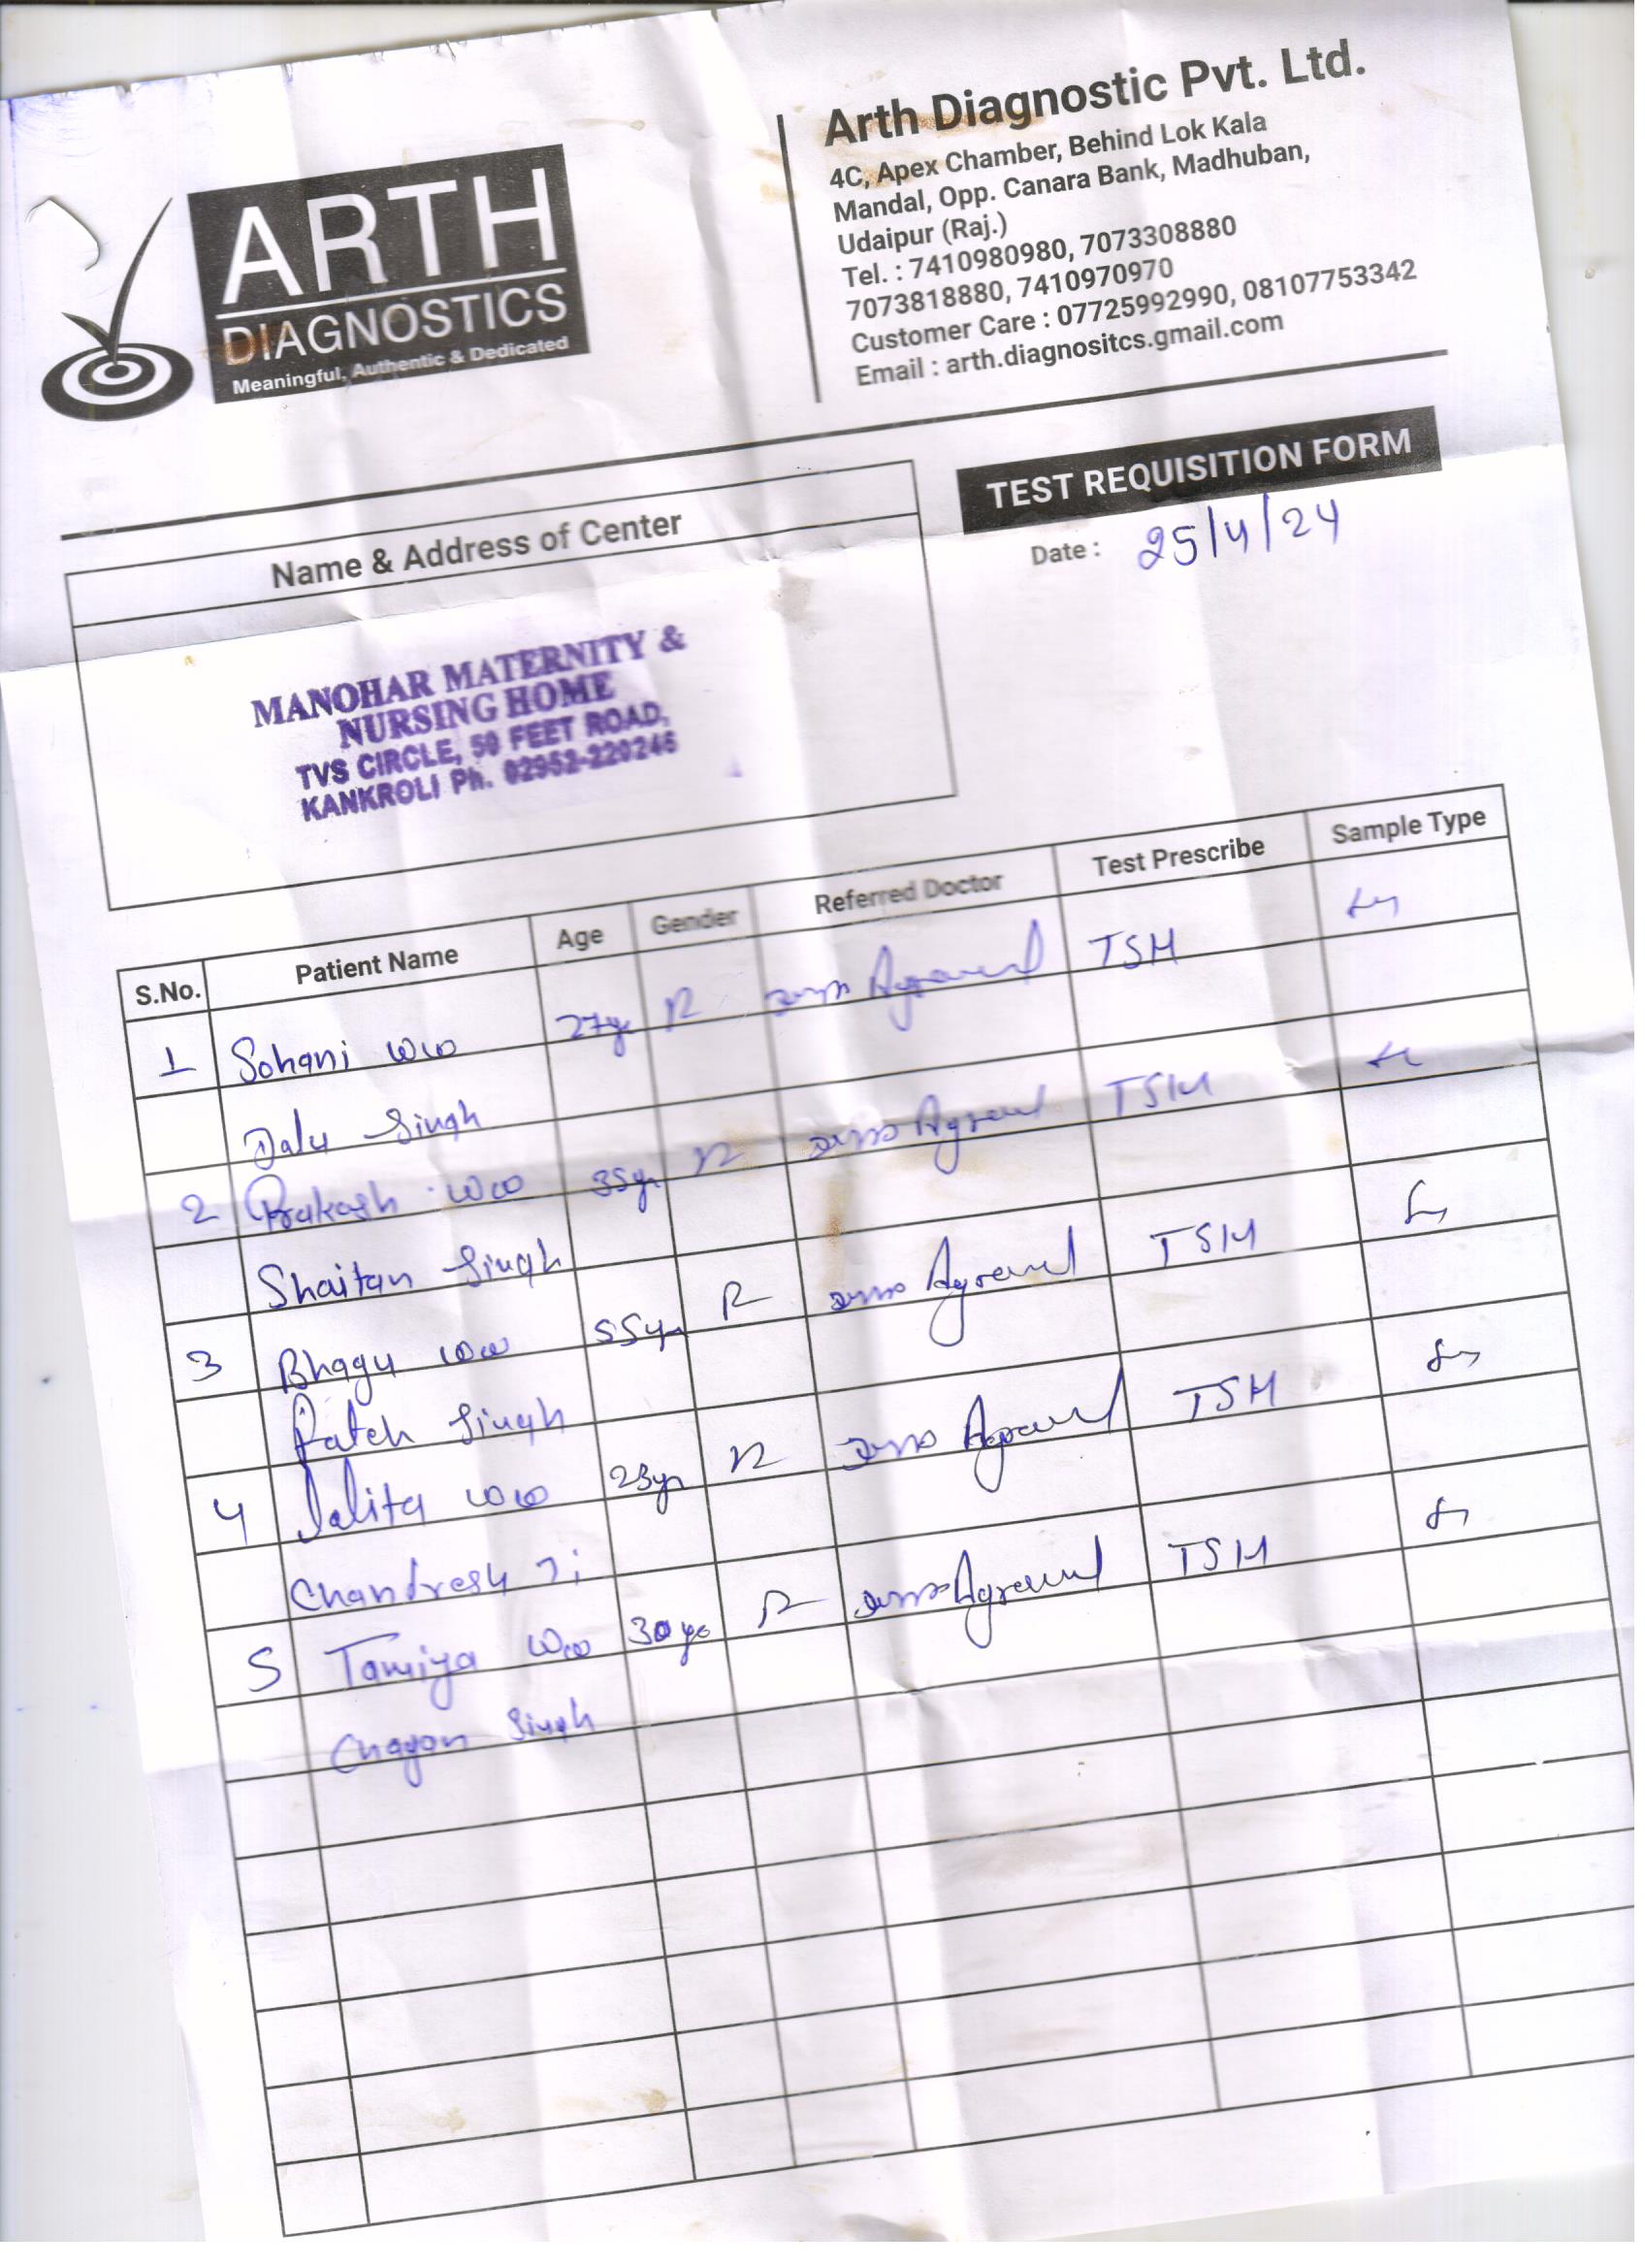 ARTH
DIAGNOSTICS
Meaningful, Authentic & Dedicated
Arth Diagnostic Pvt. Ltd.
4C, Apex Chamber, Behind Lok Kala
Mandal, Opp. Canara Bank, Madhuban,
Udaipur (Raj.)
Tel. : 7410980980, 7073308880
7073818880, 7410970970
Customer Care : 07725992990, 08107753342
Email : arth.diagnositcs.gmail.com
TEST REQUISITION FORM
Date : 25/4/24
Name & Address of Center
MANOHAR MATERNITY &
NURSING HOME
TVS CIRCLE, 50 FEET ROAD,
KANKROLI Ph. 02952-220246
S.No. Patient Name Age Gender Referred Doctor Test Prescribe Sample Type
1 Sohani w/o 27yr Agrawal TSH
Dalu Singh
2 Prakash w/o 35yr Agrawal TSH
Shaitan Singh
3 Bhagu w/o 55yr Agrawal TSH
Fateh Singh
4 Lalita w/o 23yr Agrawal TSH
Chandresh Ji
5 Tamiya w/o 30yr Agrawal TSH
Singh